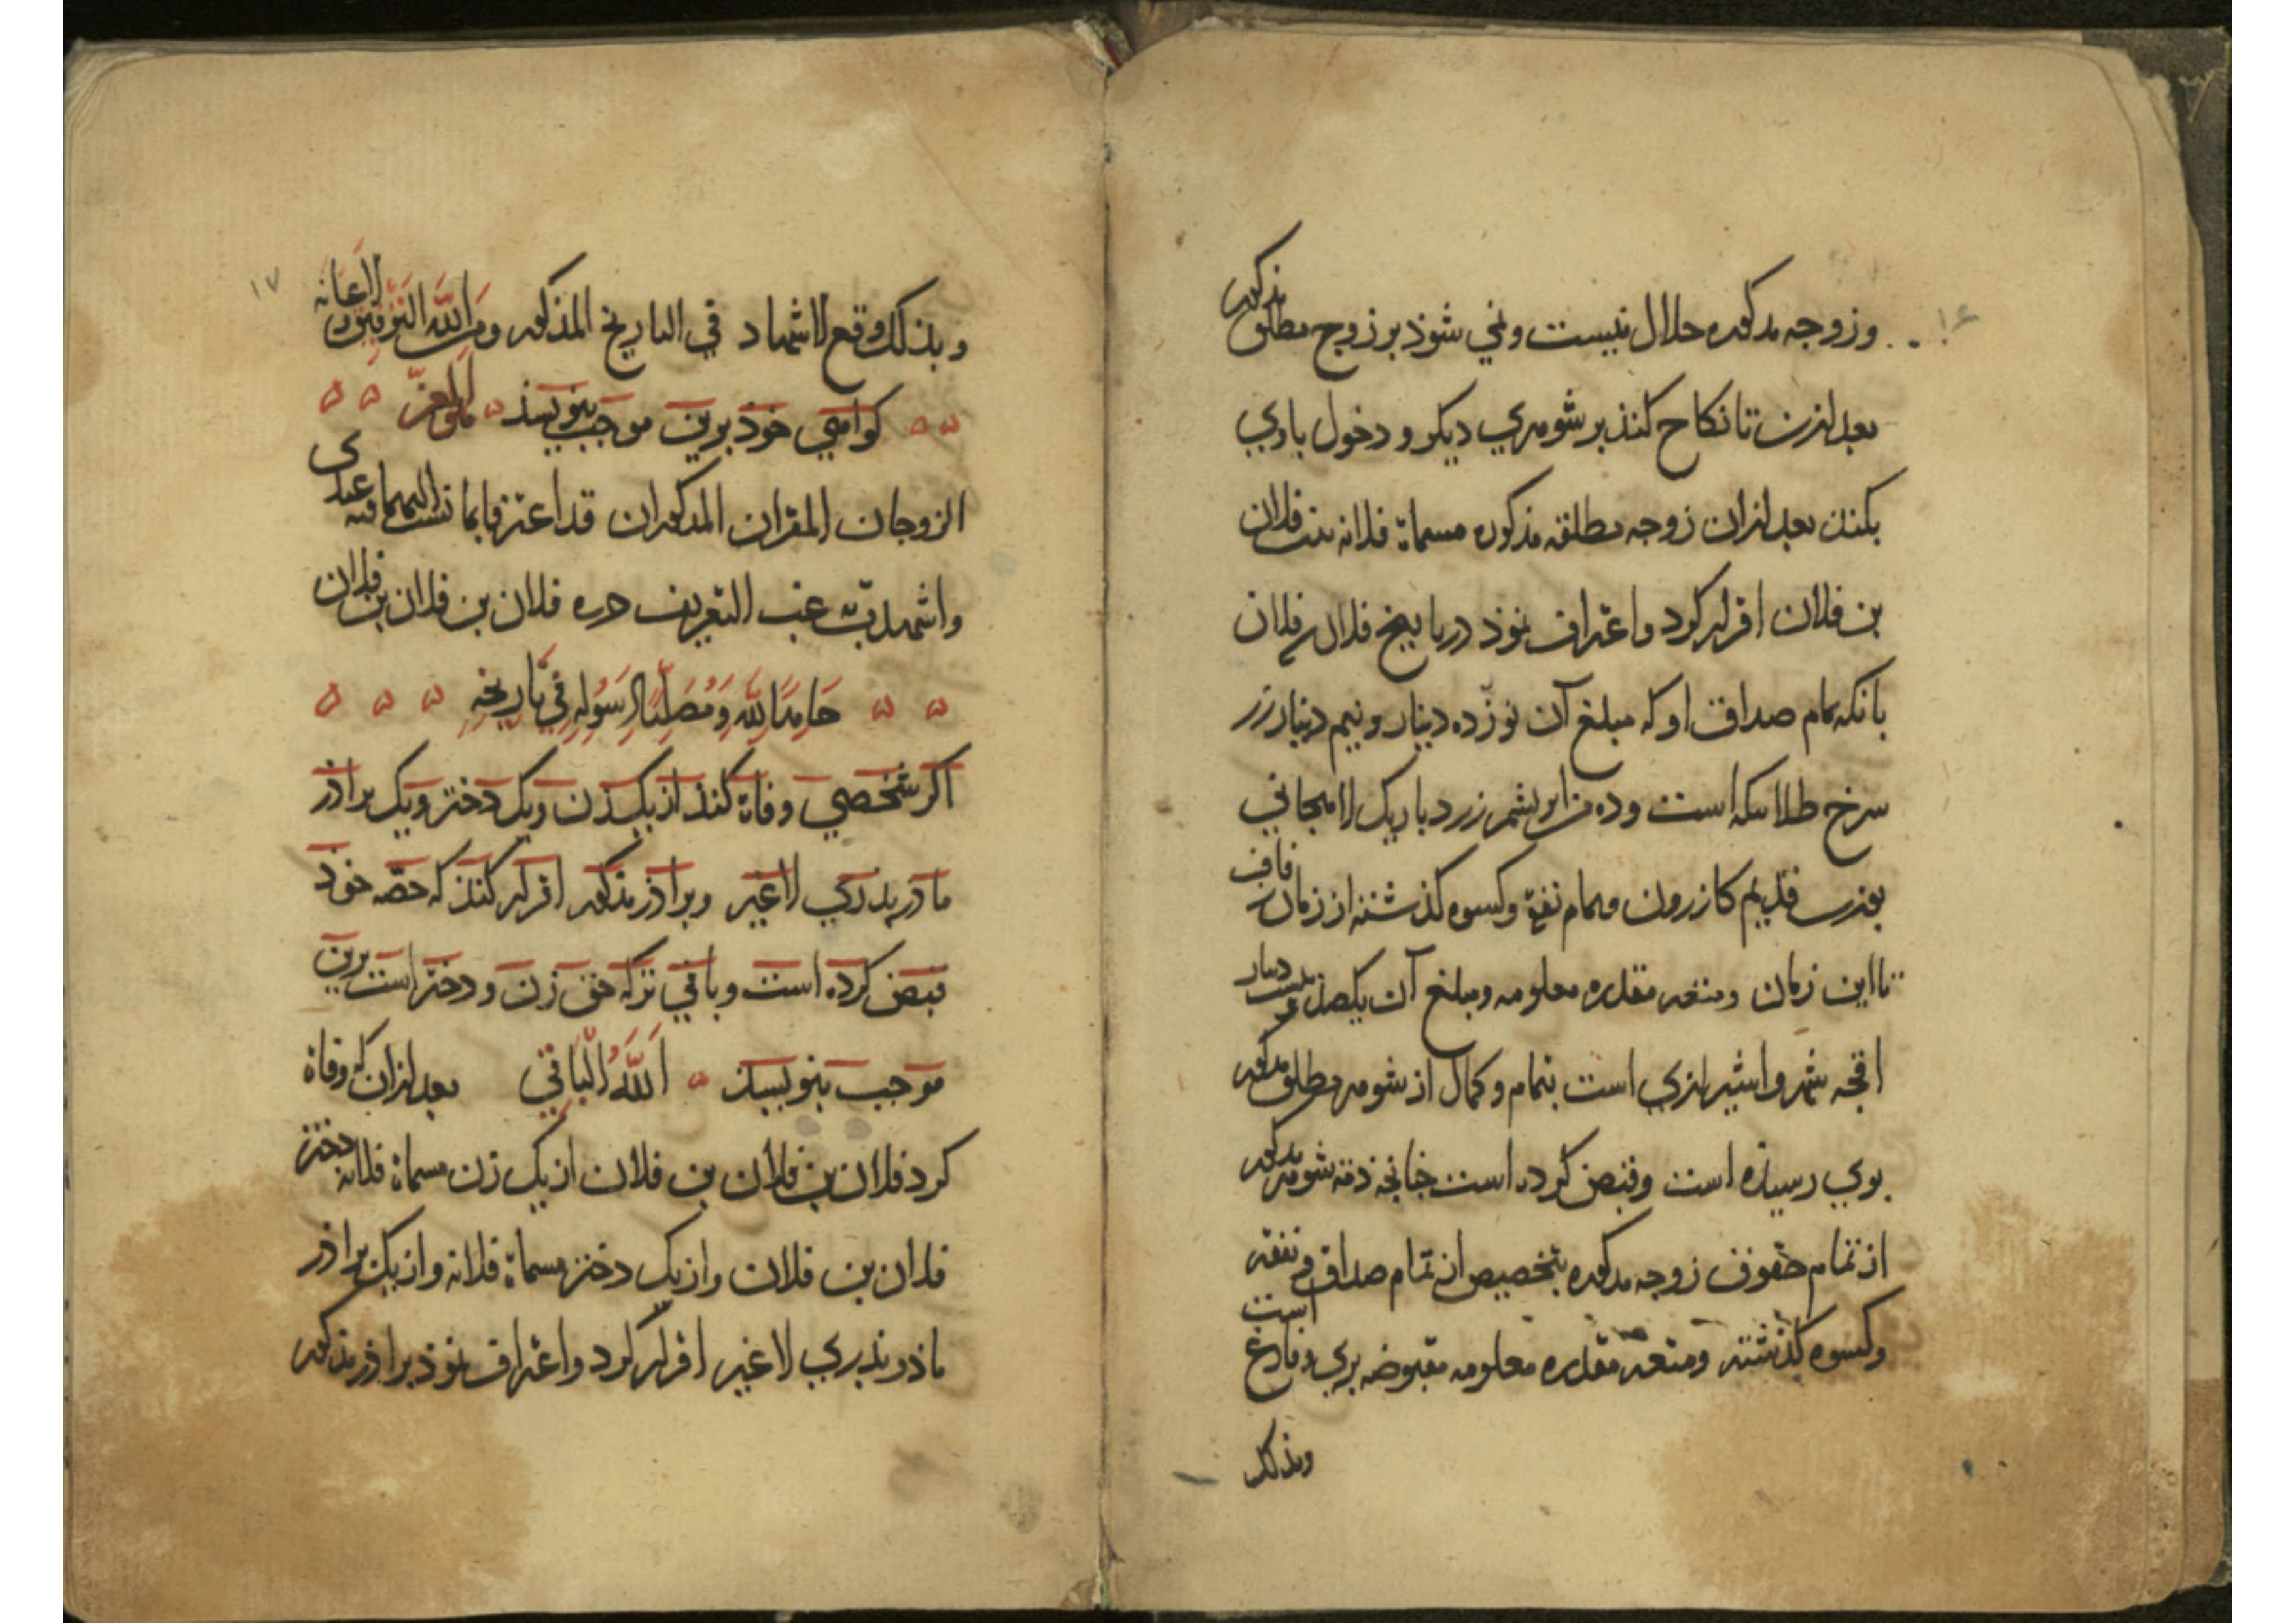 ۱۶
وزوجه مذکوره حلال نیست ونمی شوذ برزوج مطلق مذکور
بعد ازین تا نکاح کنذ بر شوهری دیکر و دخول باوی
بکنذ بعد ازان زوجه مطلقه مذکوره مسماة فلانه بنت فلان
بن فلان اقرار کرد واعتراف نموذ در تاریخ فلان فلان
بانکه تمام صداق او که مبلغ آن نوزده دینار ونیم دینار زر
سرخ طلا سکه است وده من ابریشم زرد باریک لاهیجانی
بوزن قدیم کازرون وتمام نفقه وکسوه کذشته از زمان زفاف
تا این زمان ومتعه مقدره معلومه ومبلغ آن یکصد بیست دینار
اقجه شهروا شیرازی است بتمام وکمال از شوهر مطلق مذکور
بوی رسیذه است وقبض کرده است چنانچه ذمه شوهر مذکور
از تمام حقوق زوجه مذکوره بتخصیص از تمام صداق و نفقه
وکسوه کذشته ومتعه مقدره معلومه مقبوضه بری وفارغ است
وبذلک
۱۷
وبذلک وقع الاشهاد في التاریخ المذکور ومن الله التوفیق والاعانه
کواهی خوذ برین موجب بنویسذ
الزوجان المقران المذکوران قد اعترفا بما نسب الیهما فیه عندی
واشهدت عقب التعریف حرره فلان بن فلان بن فلان
حَامِدًا لِلَّهِ وَمُصَلِّيًا لِرَسُولِهِ فِي تَارِيخِهِ
اکر شخصي وفاة کنذ از یک زن ویک دختر ویک براذر
ماذر بذری لاغیر وبراذر مذکور اقرار کنذ که حصه خوذ
قبض کرده است وباقي ترکه حق زن ودختر است برین
موجب بنویسذ اَللَّهُ الْبَاقِي بعد ازان که وفاة
کرد فلان بن فلان بن فلان از یک زن مسماة فلانه دختر
فلان بن فلان واز یک دختر مسماة فلانه واز یک براذر
ماذر بذری لاغیر اقرار کرد واعتراف نموذ براذر مذکور